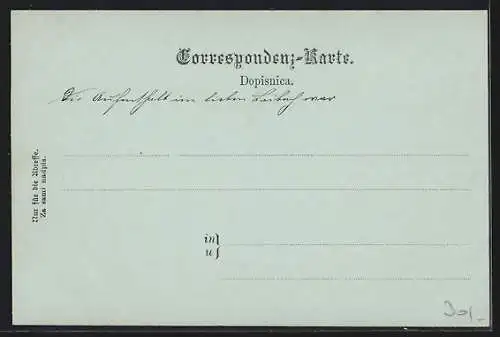 Correspondenz-Karte.
Dopisnica.
Die Aufenthalt im lieben Laibach war
Nur für die Adresse.
Za samo nadpis.
in
u